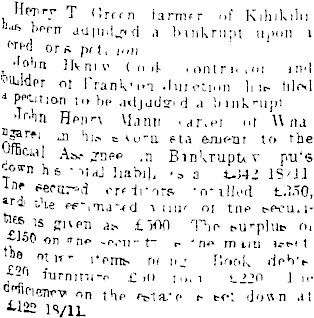 Henry T Green farmer of Kihikihi
has been adjudged a bankrupt upon a
creditors petition
John Henry Cook contractor and
builder of Frankton Junction has filed
a petition to be adjudged a bankrupt
John Henry Mann carter of Wha
ngarei in his sworn statement to the
Official Assignee in Bankruptcy puts
down his total liabilities at £342 18/11
The secured creditors totalled £350,
and the estimated value of the securi-
ties is given as £500 The surplus of
£150 on the security is the main asset
the other items being Book debts
£20 furniture £220 The
deficiency on the estate is set down at
£122 18/11